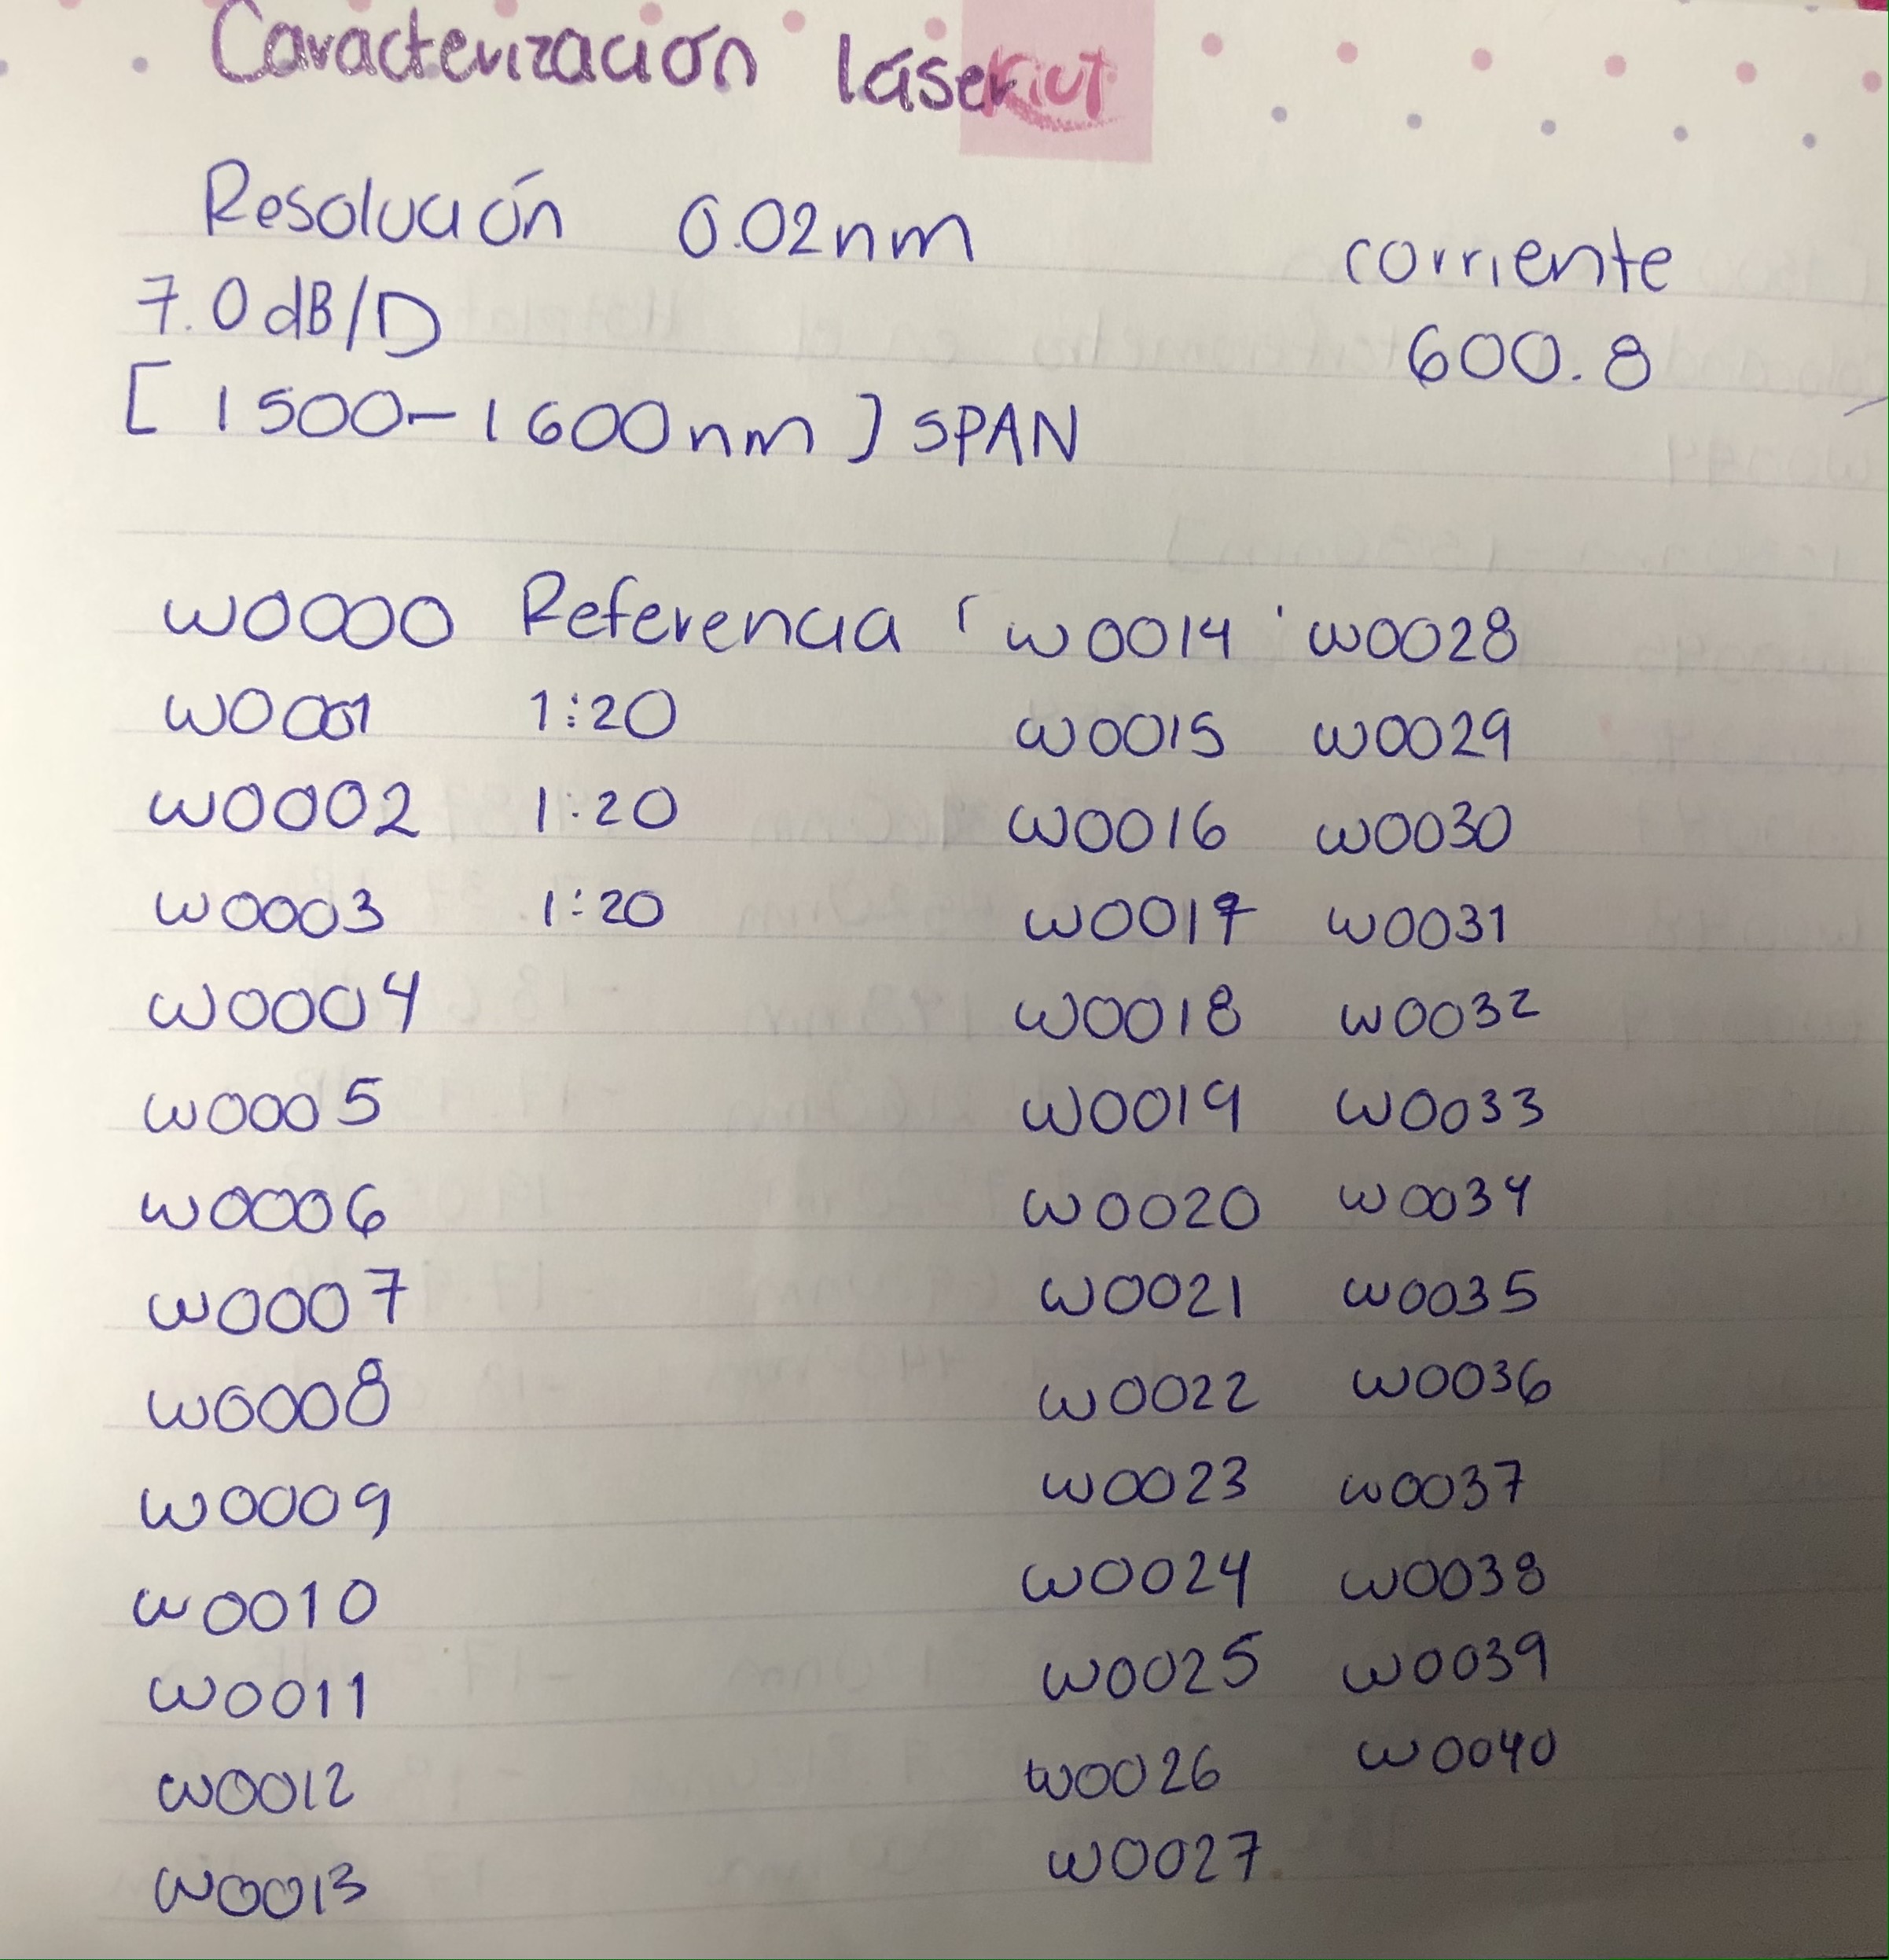 Caracterización láser
Resolución 0.02nm
7.0dB/D
[1500-1600nm] SPAN
corriente
600.8
W0000 Referencia
W0001 1:20
W0002 1:20
W0003 1:20
W0004
W0005
W0006
W0007
W0008
W0009
W0010
W0011
W0012
W0013
W0014
W0015
W0016
W0017
W0018
W0019
W0020
W0021
W0022
W0023
W0024
W0025
W0026
W0027
W0028
W0029
W0030
W0031
W0032
W0033
W0034
W0035
W0036
W0037
W0038
W0039
W0040